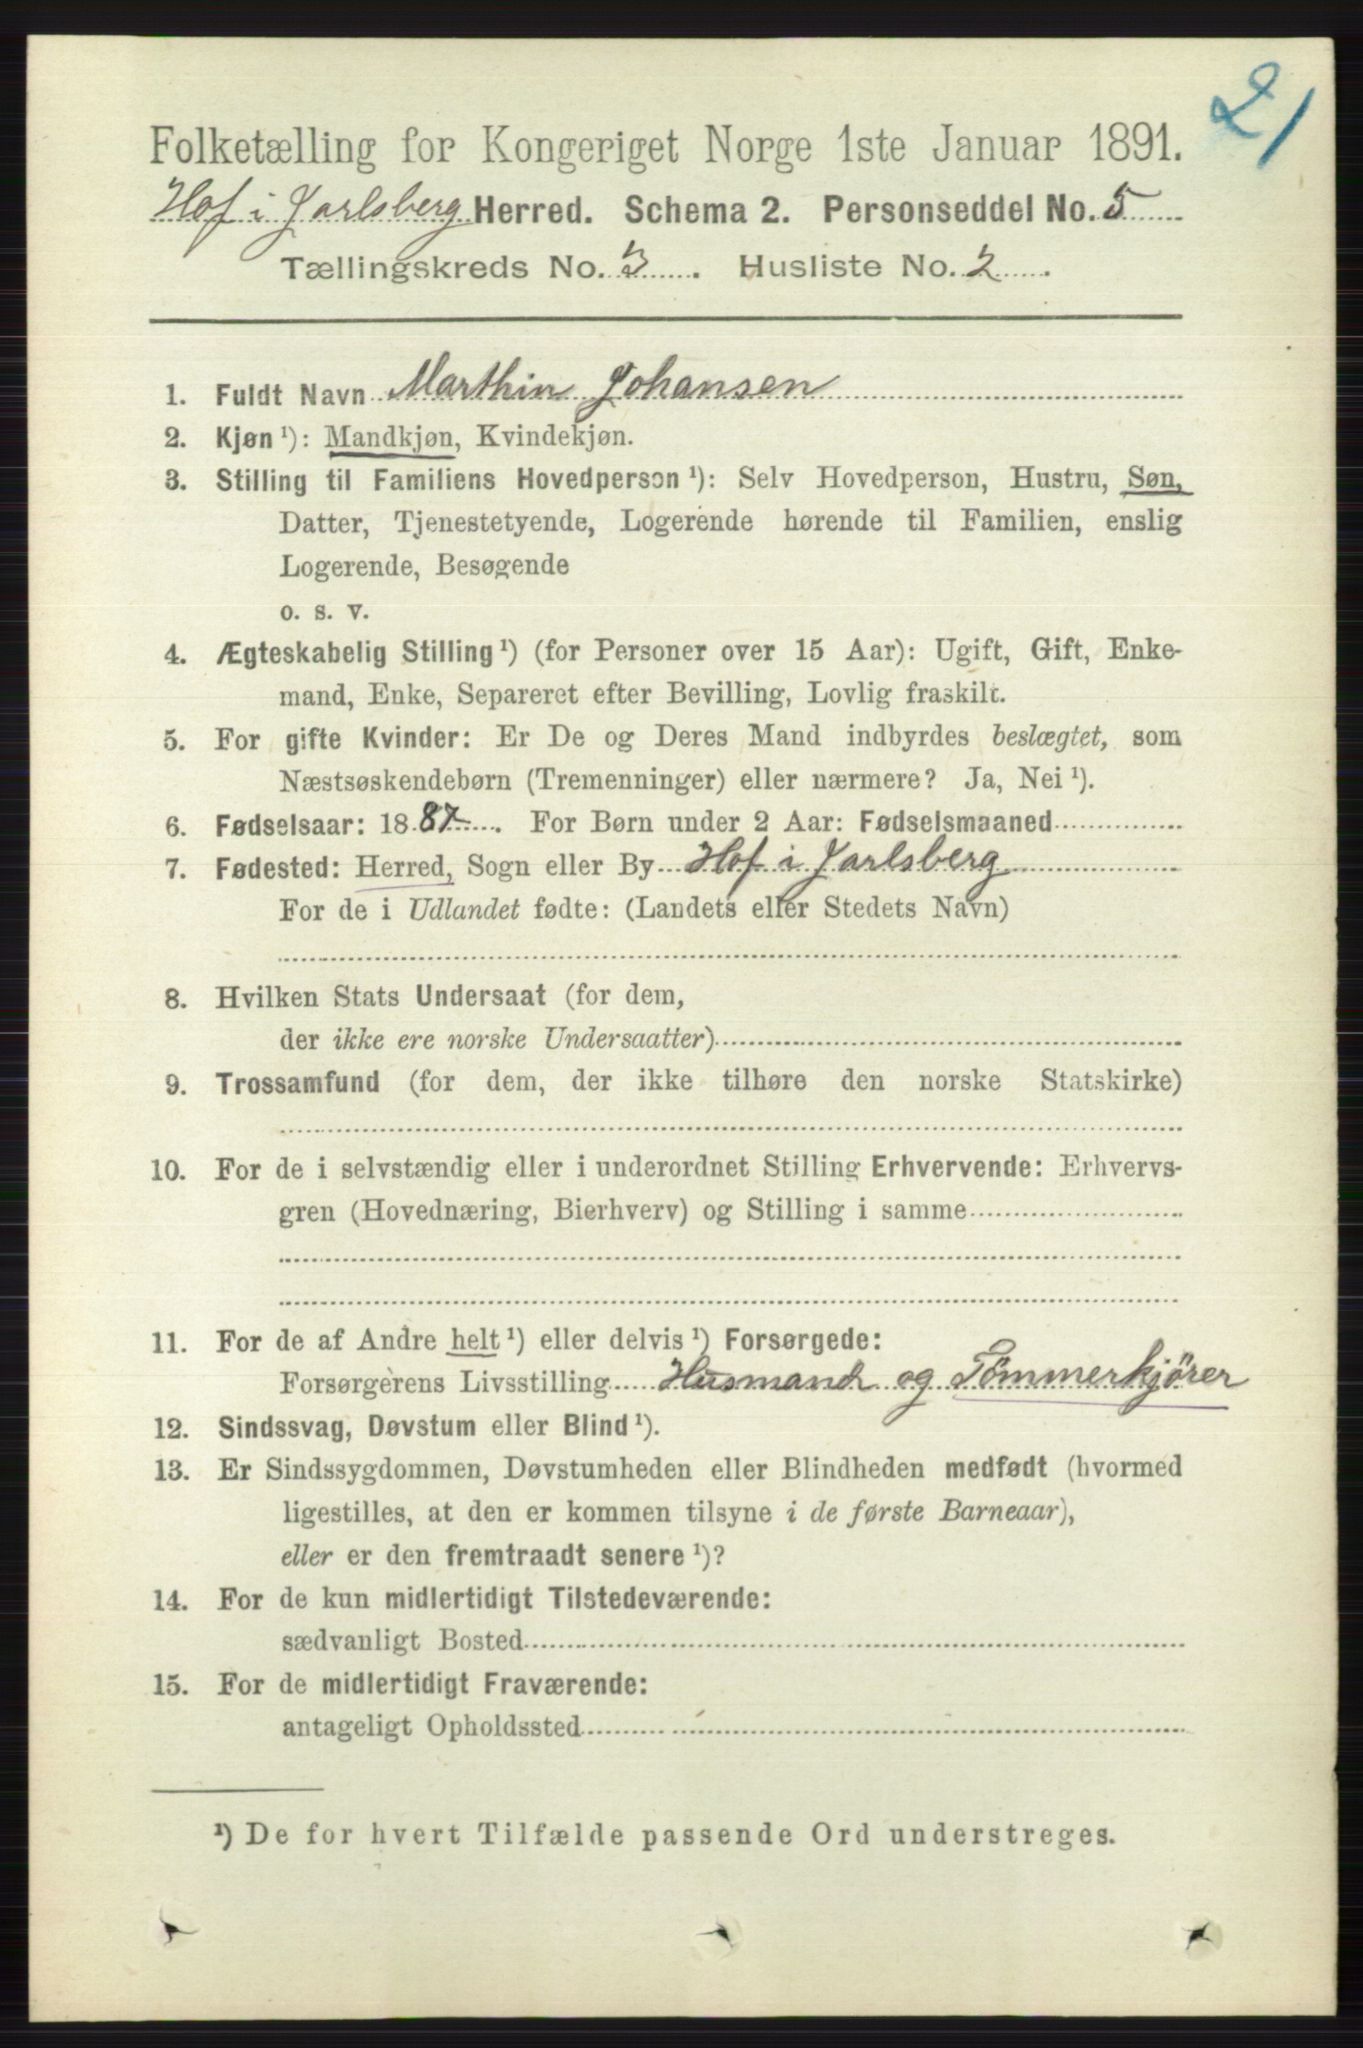 21
Folketælling for Kongeriget Norge 1ste Januar 1891.
Hof i Jarlsberg Herred. Schema 2. Personseddel No. 5
Tællingskreds No. 3. Husliste No. 2.
1. Fuldt Navn Marthin Johansen
2. Kjøn ¹): Mandkjøn, Kvindekjøn.
3. Stilling til Familiens Hovedperson ¹): Selv Hovedperson, Hustru, Søn,
Datter, Tjenestetyende, Logerende hørende til Familien, enslig
Logerende, Besøgende
o. s. v.
4. Ægteskabelig Stilling ¹) (for Personer over 15 Aar): Ugift, Gift, Enke-
mand, Enke, Separeret efter Bevilling, Lovlig fraskilt.
5. For gifte Kvinder: Er De og Deres Mand indbyrdes beslægtet, som
Næstsøskendebørn (Tremenninger) eller nærmere? Ja, Nei ¹).
6. Fødselsaar: 1887. For Børn under 2 Aar: Fødselsmaaned
7. Fødested: Herred, Sogn eller By Hof i Jarlsberg
For de i Udlandet fødte: (Landets eller Stedets Navn)
8. Hvilken Stats Undersaat (for dem,
der ikke ere norske Undersaatter)
9. Trossamfund (for dem, der ikke tilhøre den norske Statskirke)
10. For de i selvstændig eller i underordnet Stilling Erhvervende: Erhvervs-
gren (Hovednæring, Bierhverv) og Stilling i samme
11. For de af Andre helt ¹) eller delvis ¹) Forsørgede:
Forsørgerens Livsstilling Husmand og Tömmerkjörer
12. Sindssvag, Døvstum eller Blind ¹).
13. Er Sindssygdommen, Døvstumheden eller Blindheden medfødt (hvormed
ligestilles, at den er kommen tilsyne i de første Barneaar),
eller er den fremtraadt senere ¹)?
14. For de kun midlertidigt Tilstedeværende:
sædvanligt Bosted
15. For de midlertidigt Fraværende:
antageligt Opholdssted
¹) De for hvert Tilfælde passende Ord understreges.